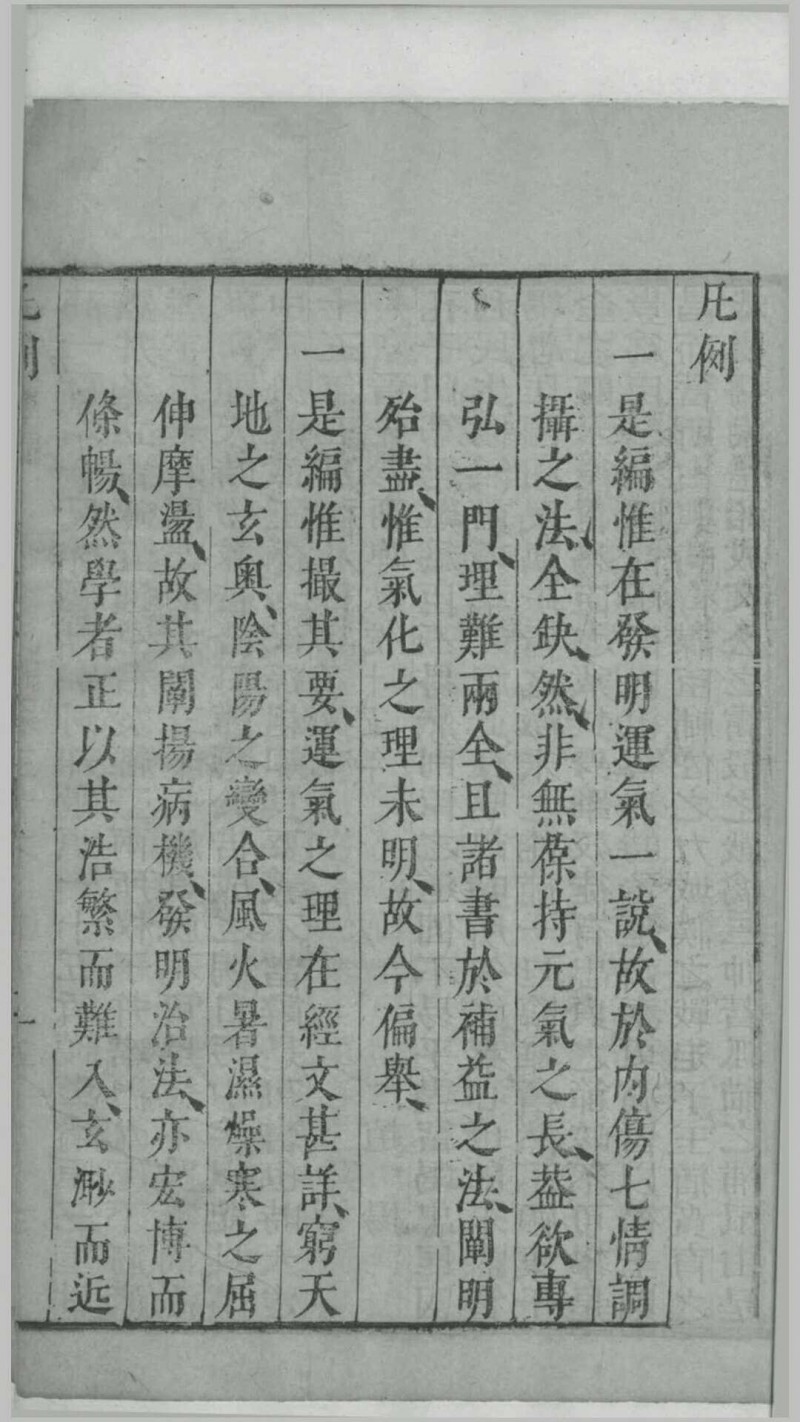 凡例
一是編惟在發明運氣一說、故於內傷七情調
攝之法、全缺、然、非無葆持元氣之長、葢欲專
弘一門、理難兩全、且諸書於補益之法、闡明
殆盡、惟氣化之理未明、故今偏舉、
一是編惟撮其要、運氣之理在經文甚詳、窮天
地之玄奧、陰陽之變合、風火暑濕燥寒之屈
伸摩盪、故其闡揚病機、發明治法、亦宏博而
條暢、然學者正以其浩繁而難入、玄渺而近
凡例
一